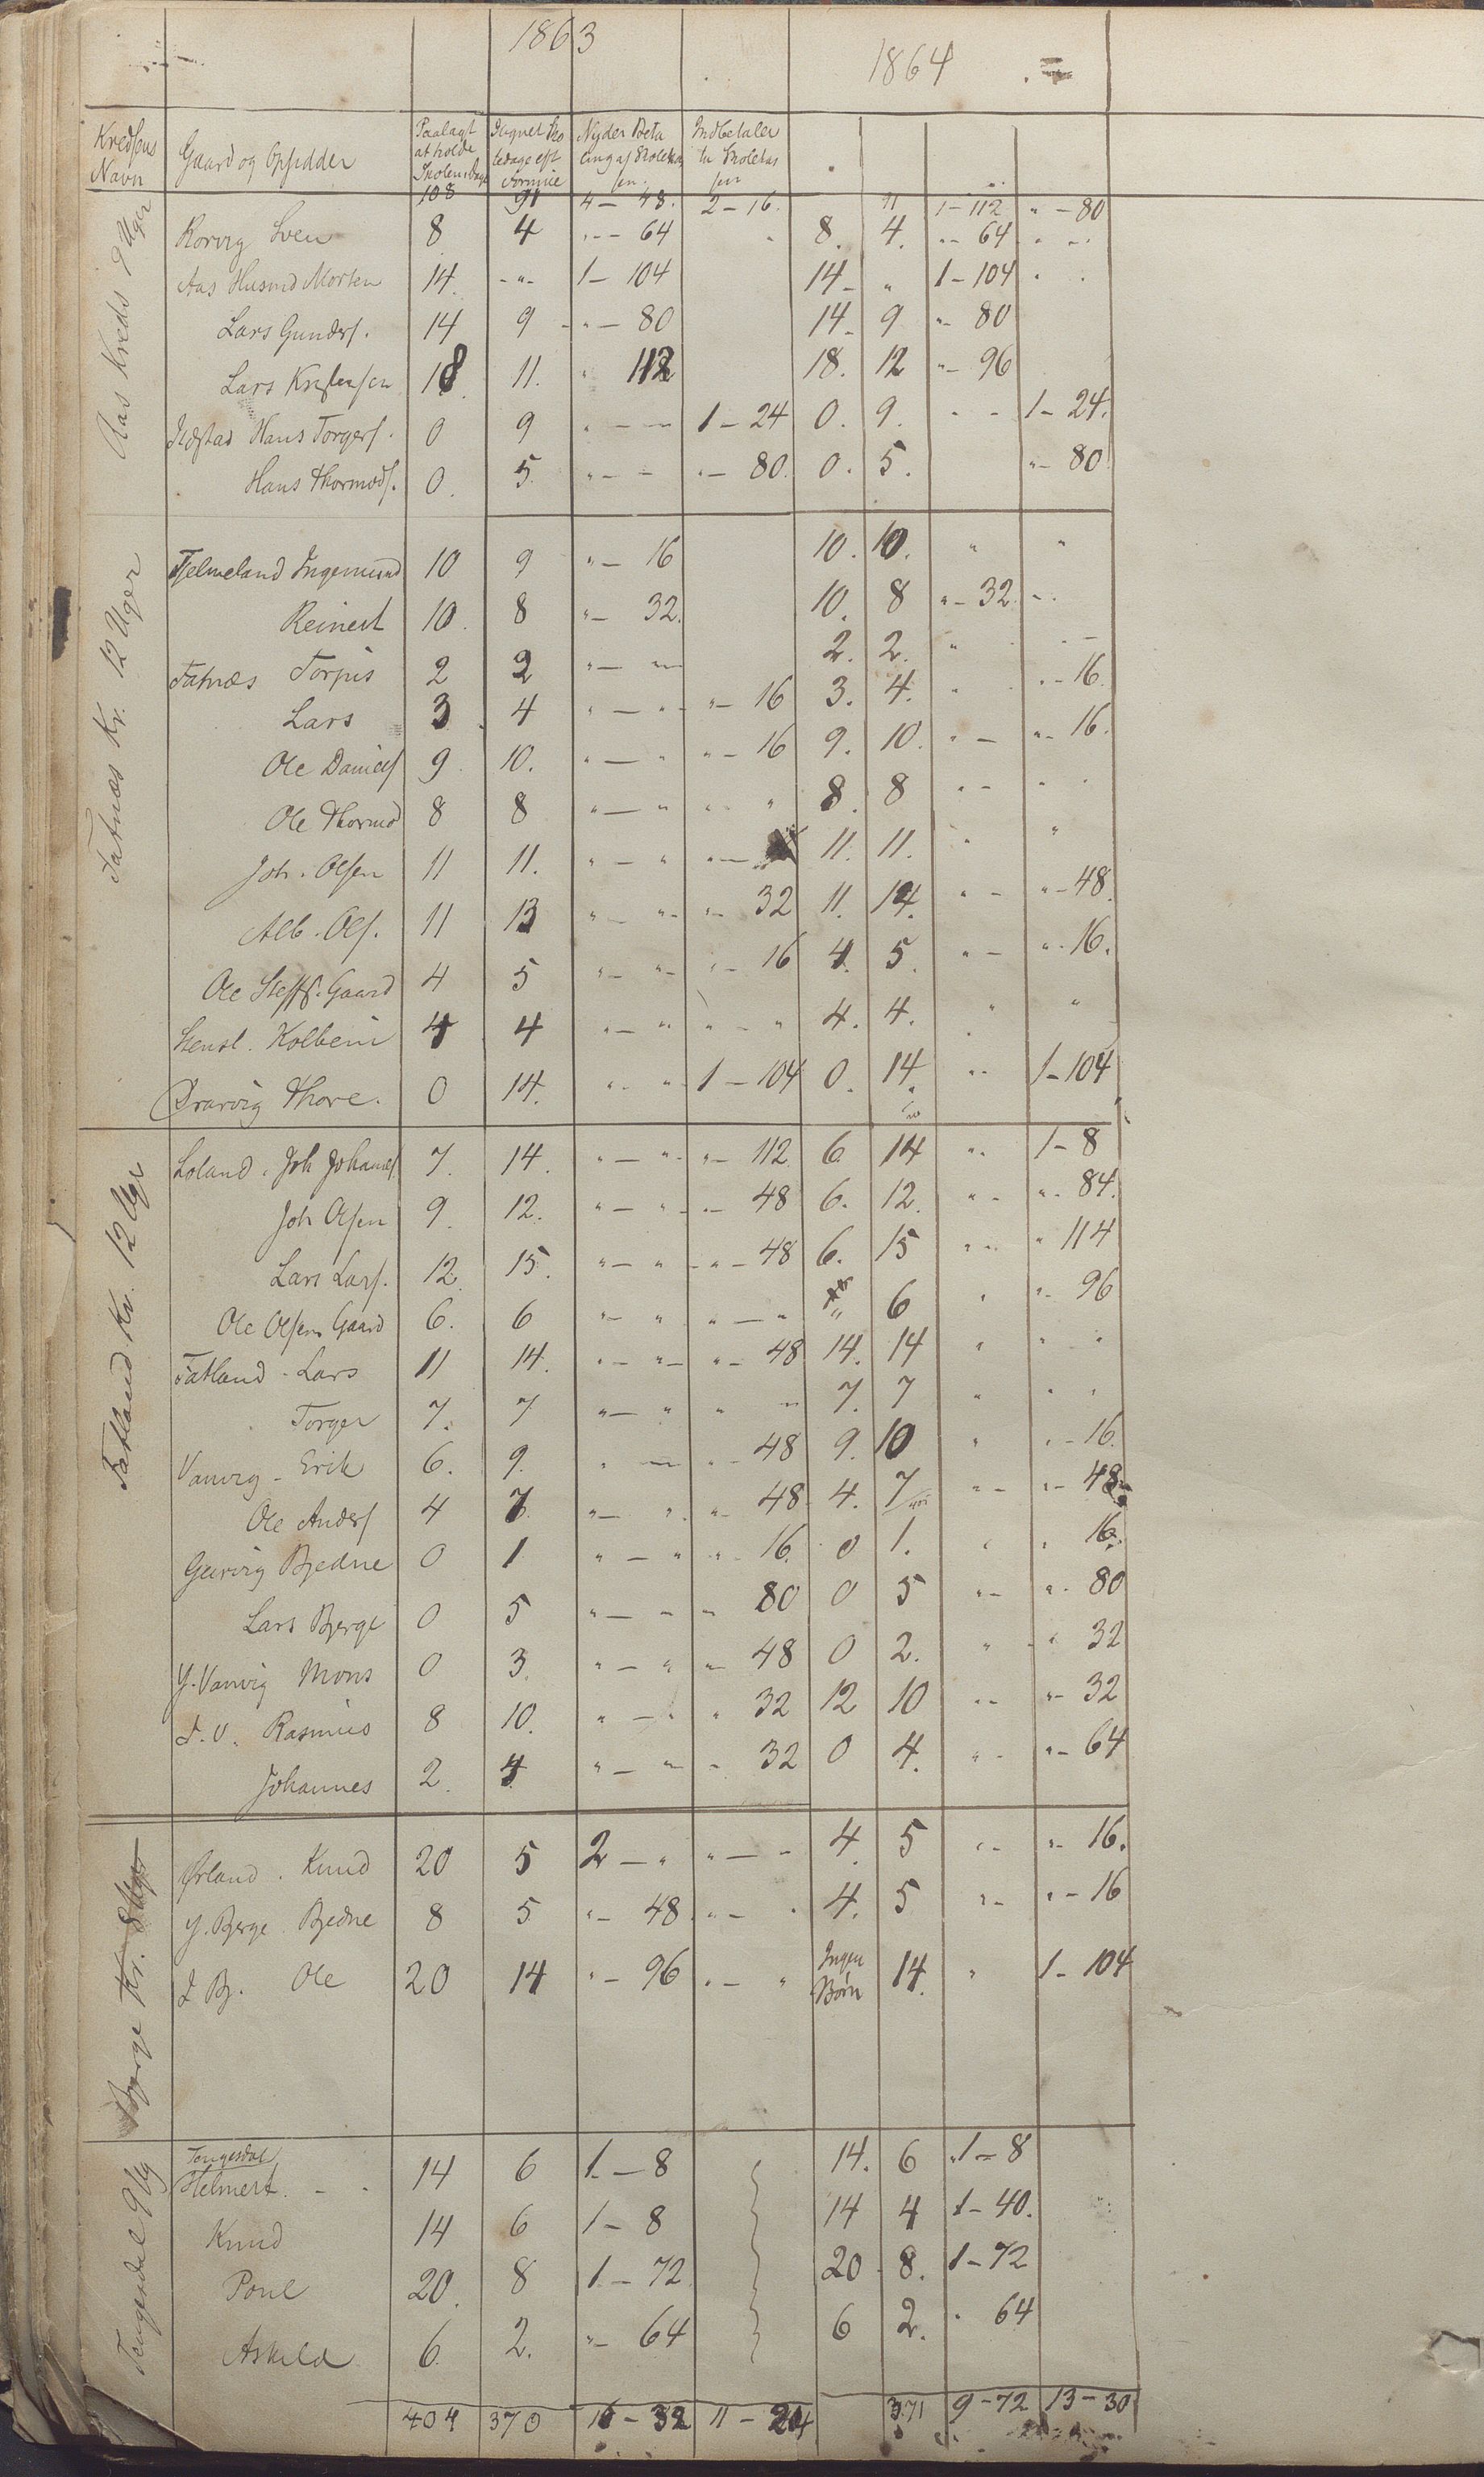 1863 1864
Kredsens Navn | Gaard og Opsidder | Paalagt at holde Skolen i Dage | Skoledage eft Formue | Nyder Beta ling af Skolekas sen. | Indbetaler til Skolekas sen
108 | 91 | 4 – 48. | 2 – 16. | | 91 | 1 – 112 | " – 80
Aas Kreds 9 Uger
Rorvig Sven | 8 | 4 | " – 64 | " | 8. | 4. | " – 64 | " – "
Aas Husmd Morten | 14. | – " – | 1 – 104 | | 14 – | " | 1 – 104 | "
Lars Gunders. | 14 | 9 | " – 80 | | 14 – | 9 | " – 80
Lars Kristensen | 18. | 11. | " 112 | | 18. | 12 | " – 96
Hans Torgers. | 0 | 9 | " – " | 1 – 24 | 0. | 9. | " – | 1 – 24.
Hans Thormods. | 0. | 5. | " – – | " – 80. | 0. | 5. | | " – 80
Fatnæs Kr. 12 Uger
Tjelmeland Ingemund | 10 | 9 | " – 16 | | 10. | 10. | " | "
Reinert | 10. | 8 | " – 32. | | 10. | 8 | " – 32. | " –
Fatnæs Torjus | 2 | 2 | " – " | | 2. | 2. | " | " –
Lars | 3 | 4 | " – " – | " – 16 | 3. | 4. | " | " – 16.
Ole Daniels | 9 | 10. | " – " | " – 16 | 9. | 10. | " – | " – 16.
Ole Thormod | 8 | 8 | " – " | " " | 8. | 8 | " – | "
Joh. Olsen | 11 | 11. | " – " | " – | 11. | 11. | " | "
Alb. Ols. | 11 | 13 | " – " – | " – 32 | 11. | 14. | " – | " – 48.
Ole Steffs. Gaard | 4 | 5 | " – " – | " – 16 | 4. | 5. | " – | " – 16.
Stensl. Kolbein | 4 | 4 | " – " | " – " | 4. | 4. | " | "
Drarvig Thore. | 0 | 14. | " – " | 1 – 104 | 0. | 14. | " – | 1 – 104
Fatland Kr. 12 Uger
Loland. Joh Johans. | 7. | 14. | " – " – | " – 112 | 6. | 14 | " – | 1 – 8
Joh Olsen | 9. | 12. | " – " – | " – 48 | 6. | 12. | " – | " – 84.
Lars Lars. | 12. | 15. | " – " – | " – 48 | 6. | 15 | " – | " 114
Ole Olsen Gaard | 6. | 6 | " – " | " – " | " | 6 | " | " – 96
Fatland – Lars | 11 | 14. | " – " – | " – 48 | 14. | 14 | " | " "
Torger | 7. | 7 | " – " | " " | 7. | 7 | " | " "
Vanvig – Erik | 6. | 9. | " – " | " – 48 | 9. | 10 | " | " – 16.
Ole Anders | 4 | 7. | " – " | " – 48 | 4. | 7 | " – | " – 48.
Bjedne | 0 | 1 | " – " | " – 16. | 0 | 1. | " | " 16.
Lars Berge | 0 | 5 | " – " | " 80 | 0 | 5 | " – | " – 80
Y. Vanvig Mons | 0 | 3. | " – " | " – 48 | 0 | 2. | " | " 32
I. V. Rasmus | 8 | 10. | " – " | " 32 | 12 | 10 | " – | " – 32
Johannes | 2. | 4 | " – " | " 32 | 0 | 4. | " – | " – 64
Bjerge Kr. 8 Uger
Ørland. Knud | 20 | 5 | 2 – " | " – " | 4. | 5 | " – | " – 16.
Y. Berge Bjedne | 8 | 5 | " – 48 | " – " | 4. | 5 | " – | " – 16
I B. Ole | 20 | 14 | " – 96 | " – " | Ingen Børn | 14. | " | 1 – 104
Tengesdal 9 Ug
Tengesdal
Helmert. – – | 14 | 6 | 1 – 8 | | 14. | 6 | 1 – 8
Knud | 14 | 6 | 1 – 8 | | 14 | 4 | 1 – 40.
Poul | 20. | 8 | 1 – 72 | | 20 | 8. | 1 – 72
Askild | 6. | 2. | " – 64 | | 6 | 2. | " 64
404 | 370 | 16 – 32 | 11 – 24 | | 371 | 9 – 72 | 13 – 30